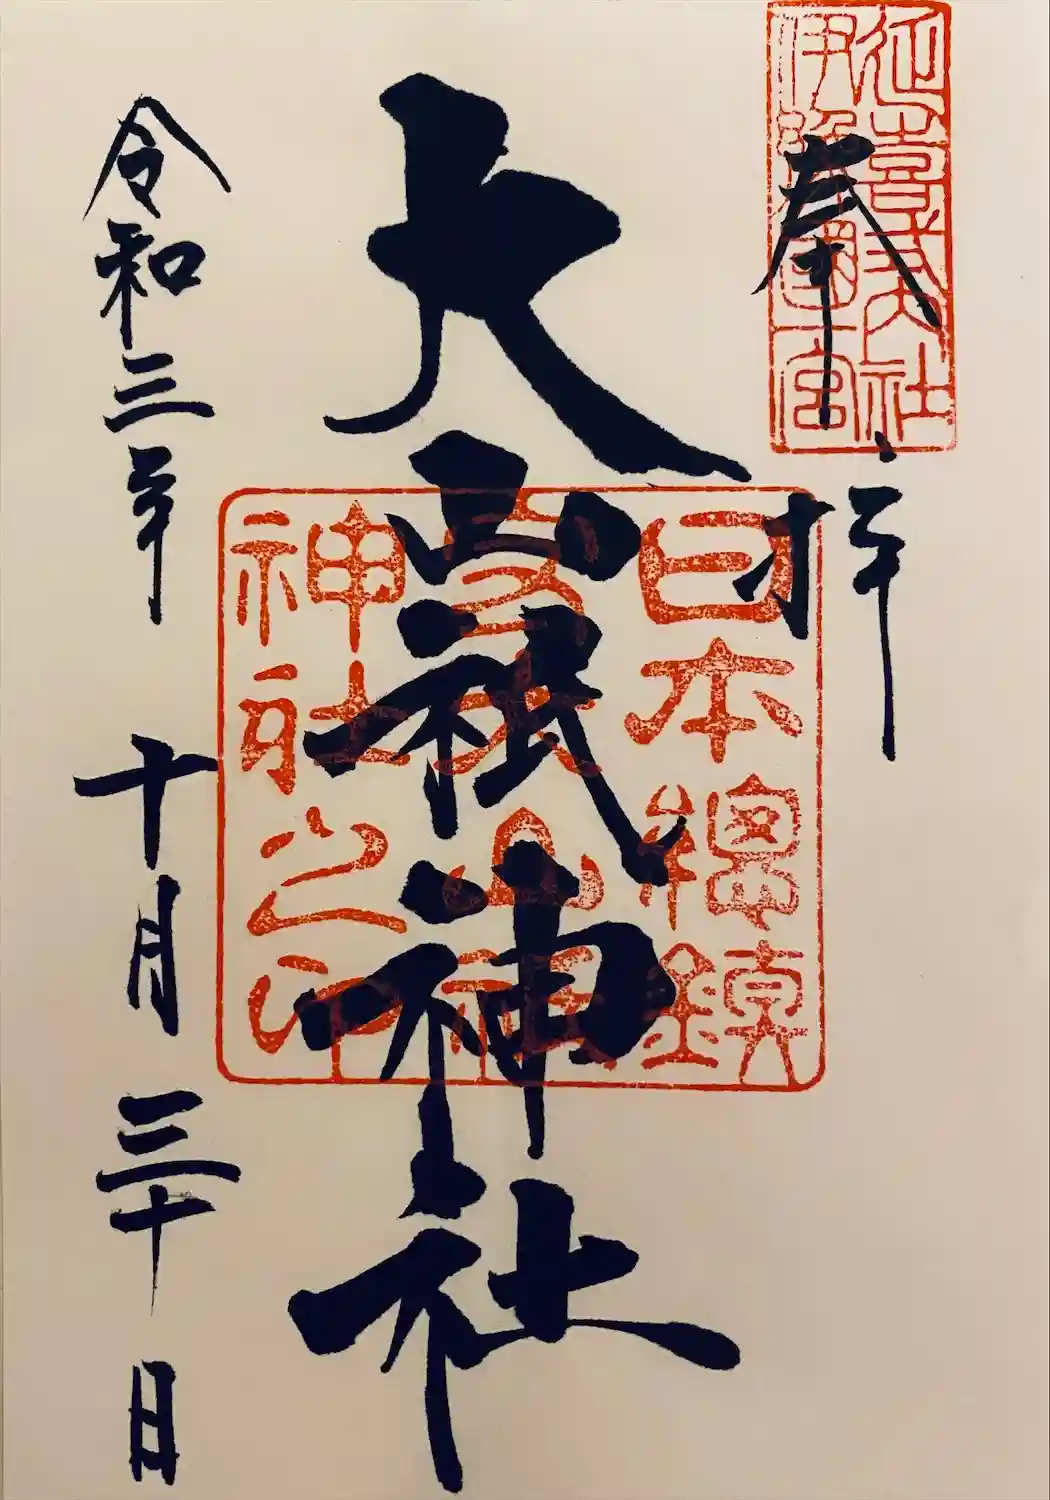 延喜式内社
伊豫國一宮
奉拝
日本總鎮
守大山祇
神社之印
大山祇神社
令和三年十月三十日